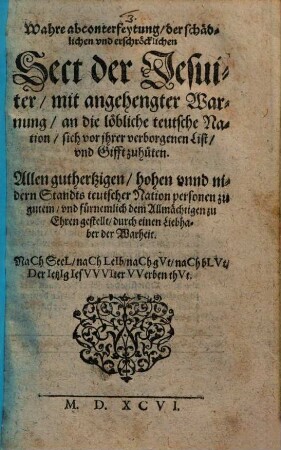 3.
Wahre abconterfeytung/ der schäd-
lichen vnd erschröcklichen
Sect der Jesui-
ter/ mit angehengter War-
nung/ an die löbliche teutsche Na-
tion/ sich vor jhrer verborgenen List/
vnd Gifft zuhüten.
Allen gutherßigen/ hohen vnnd ni-
dern Standts teutscher Nation personen zu
gutem/ vnd fürnemlich dem Allmächtigen zu
Ehren gestellt/ durch einen Liebha-
ber der Warheit.
NaCh SeeL/ naCh LeIb/ naCh gVt/ naCh bLVt/
Der Ietzig IesVVVIter VVerben thVt.
M. D. XCVI.